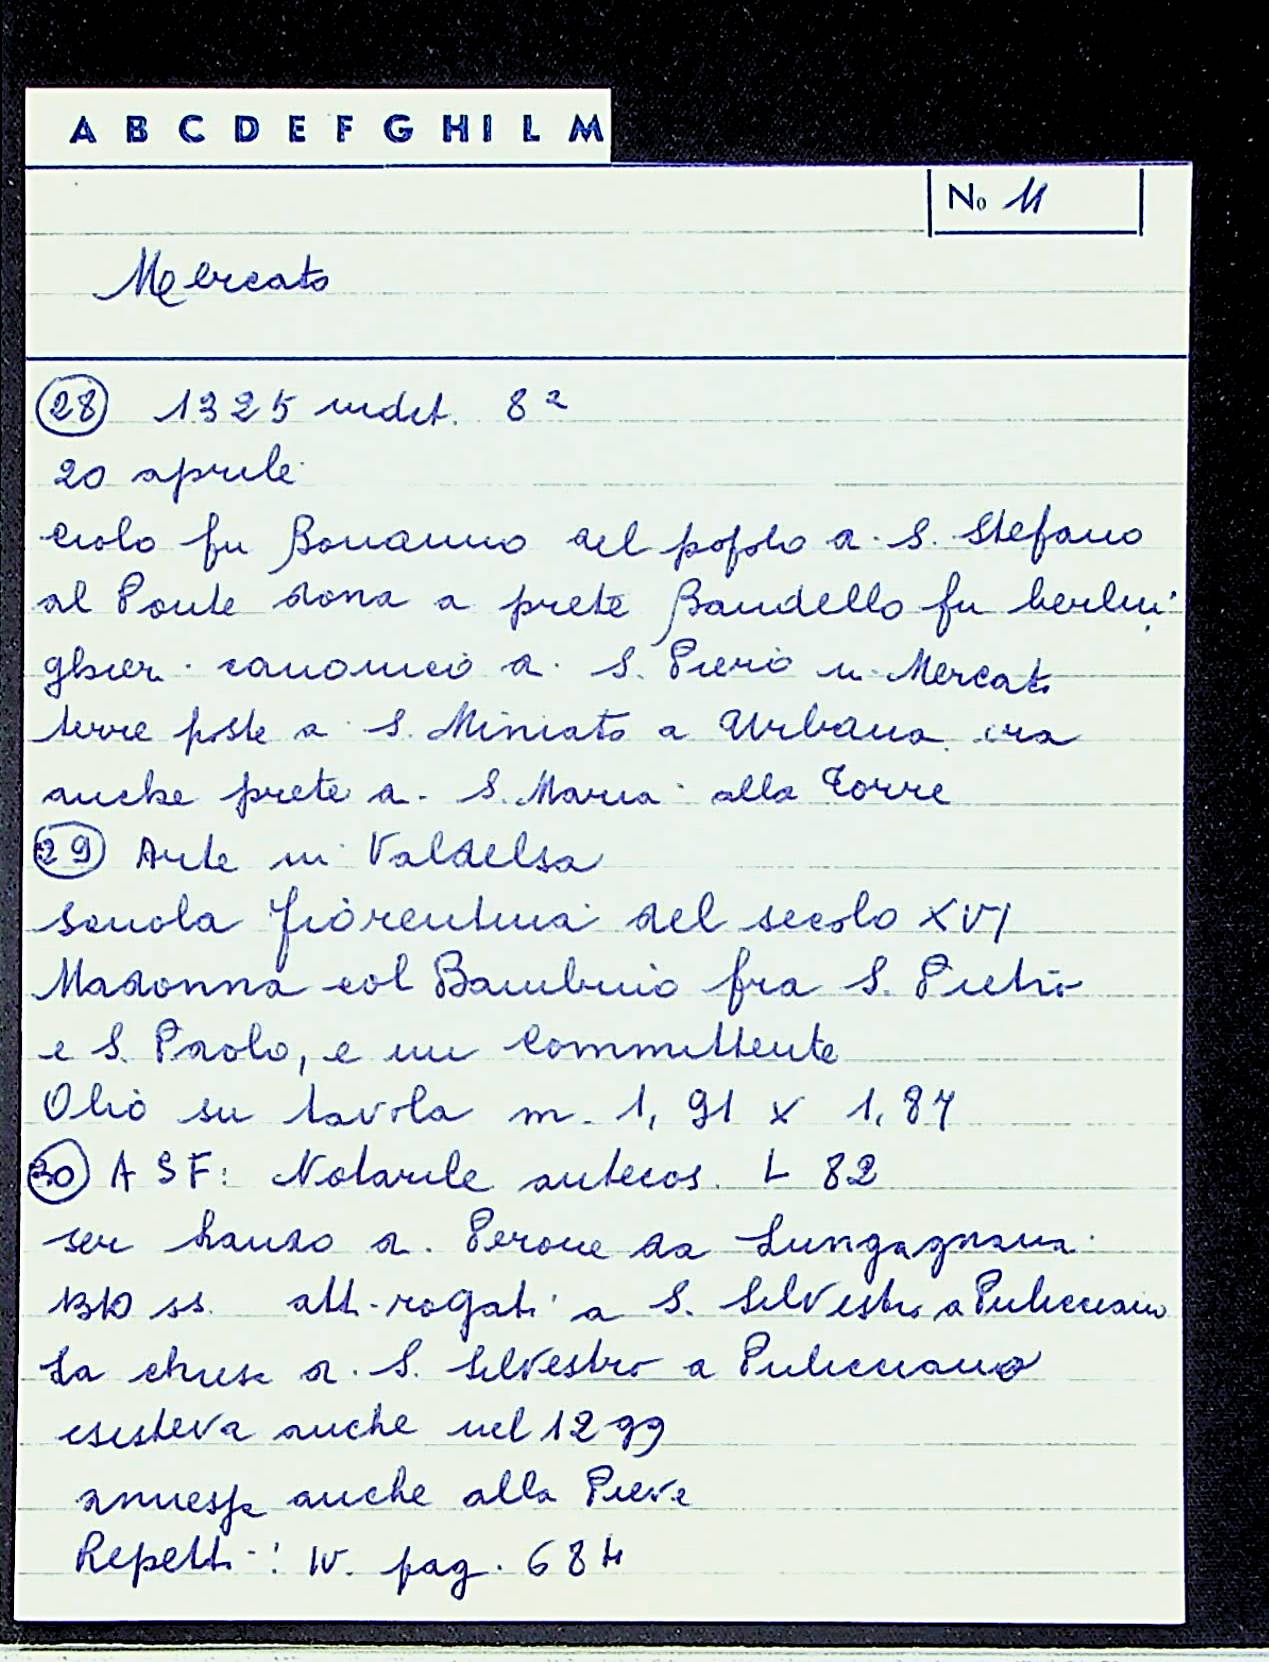 A B C D E F G H I L M
No 11
Mercato
28 1325 indit. 8a
20 aprile
Ciolo fu Bonanno del popolo di S. Stefano
al Ponte dona a prete Bandello fu berlin
ghieri canonico di S. Piero in Mercato
terre poste a S. Miniato a Urbana era
anche prete di S. Maria alla Torre
29 Arte in Valdelsa
scuola fiorentina del secolo XVI
Madonna col Bambino fra S. Pietro
e S. Paolo, e un Committente
Olio su tavola m. 1,91 x 1,87
30 ASF: Notarile antecos. L 82
ser di Perone da Lungagnana
1310 ss. atti rogati a S. Silvestro a Pulicciano
La chiesa di S. Silvestro a Pulicciano
esisteva anche nel 1299
annessa anche alla Pieve
Repetti: IV. pag. 684